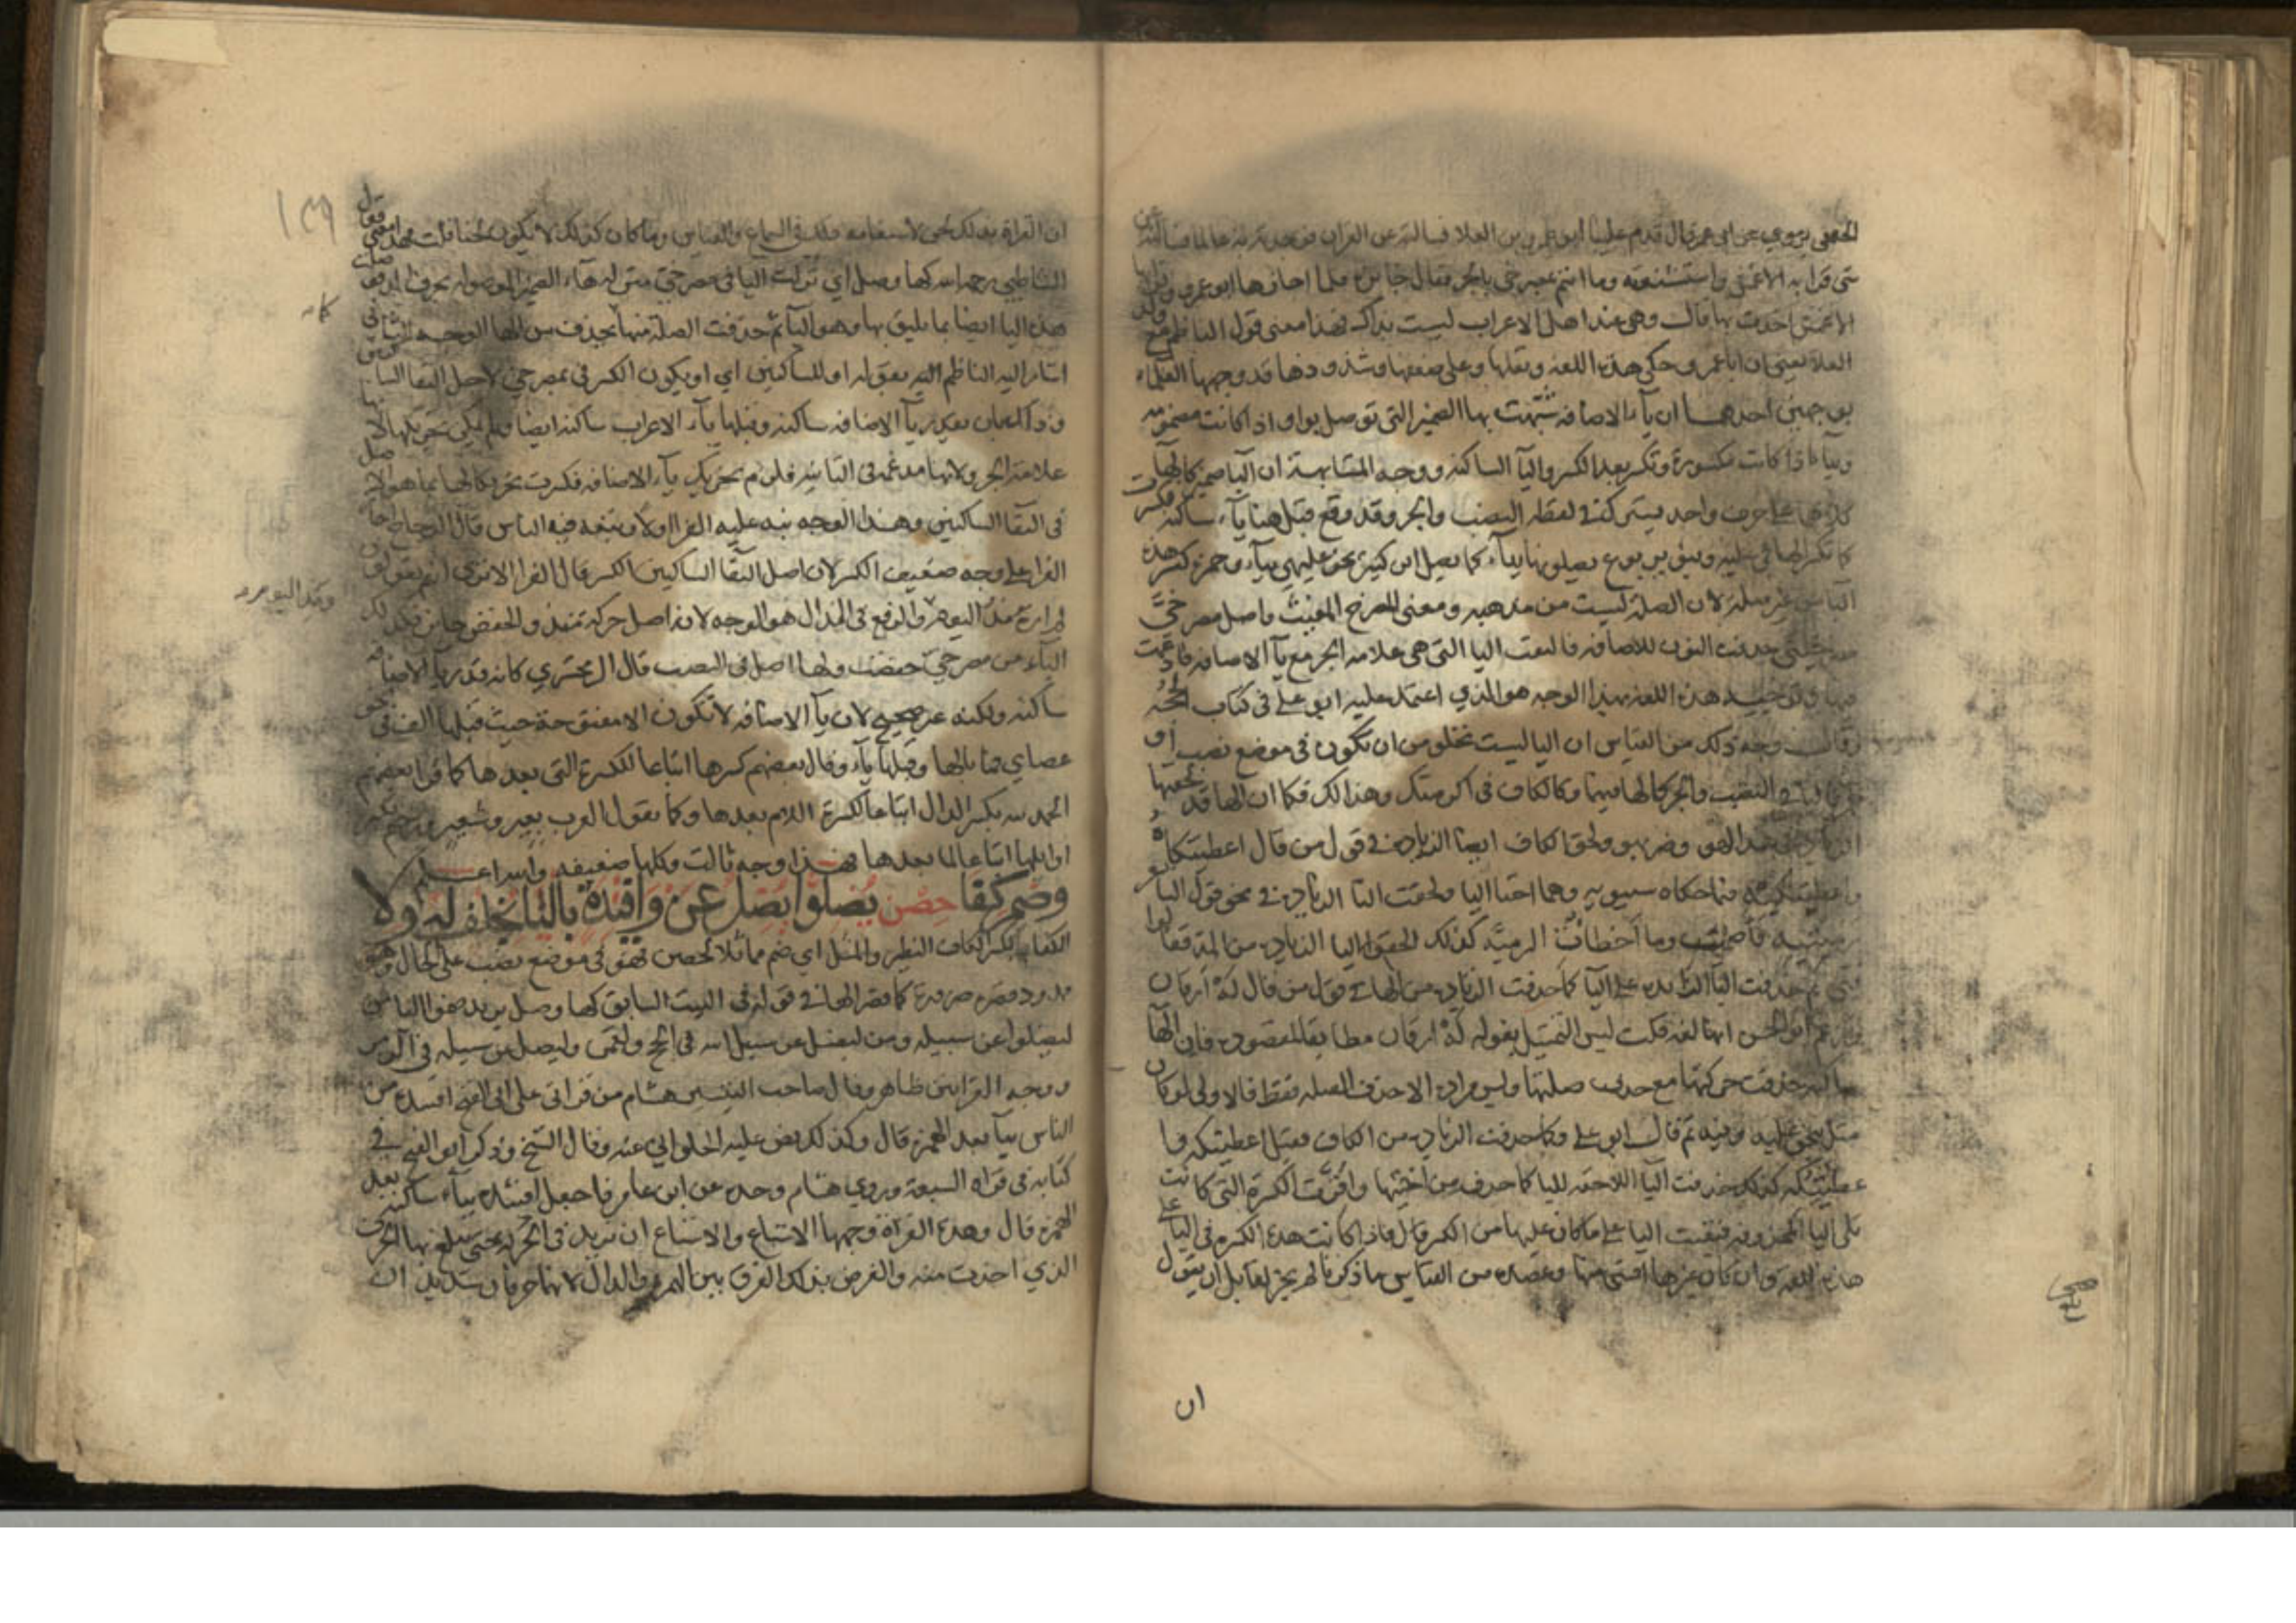 الجعفي يروي عن ابي عمر قال قدم علينا ابو عمرو بن العلا فسالته عن القران فوجدته به عالما فسالته عن
شي قرا به الاعمش واستشنعته وما انتم بمصرخي بالجر فقال جائز فلما اجازها ابو عمرو وقرا بها
الاعمش اخذت بها قال وهي عند اهل الاعراب ليست بذاك فهذا معنى قول الناظم مع ولد
العلا يعني ان ابا عمرو حكى هذه اللغه ونقلها وعلى ضعفها وشذوذها قد وجهها العلماء
بوجهين احدهما ان ياء الاضافه شبهت بها الضمير التي توصل بواو اذا كانت مضمومه
وبياء اذا كانت مكسورة وتكسر بعد الكسر واليا الساكنه ووجه المشابهة ان اليا ضمير كالهآ
كلاهما على حرف واحد يشترك في لفظه النصب والجر وقد وقع قبل هنا ياء ساكنه فكسرت
كما تكسر الها في عليه وبنو يربوع يصلونها بياء كما يصل ابن كثير نحو عليهي بياء وحمزه كسر هذه
اليا من غير صلة لان الصلة ليست من مذهبه ومعنى المصرخ المغيث واصل مصرخي
مصرخيني حذفت النون للاضافه فالتقت اليا التي هي علامه الجر مع يآ الاضافه فادغمت
فيها وتوجيه هذه اللغه بهذا الوجه هو الذي اعتمد عليه ابو علي في كتاب الحجه
وقال وجه ذلك من القياس ان اليا ليست تخلو من ان تكون في موضع نصب او
جر فاليا في النصب والجر كالها فيهما وكالكاف في اكرمتك وهذا لك فكما ان الها قد لحقتها
الزيادة في هذا لهو وضربهو ولحق الكاف ايضا الزياده في قول من قال اعطيتكاه
واعطيتكيه فيما حكاه سيبويه وهما اختا اليا ولحقت التا الزياده في نحو قول الشاعر
رميتيه فأصميت وما أخطأت الرمية كذلك الحقوا اليا الزياده من المد فقالوا
في ثم حذفت اليا الزايده على اليا كما حذفت الزياده من الهاء في قول من قال له ارقان
وزعم ابو الحسن انها لغه قلت ليس التمثيل بقوله له ارقان مطابقا لمقصوده فان الها
ساكنه حذفت حركتها مع حذف صلتها وليس مراده الا حذف الصله فقط فالاولى لو كان
مثل بنحو عليه وفيه ثم قال ابو علي وكما حذفت الزياده من الكاف فقيل اعطيتكه وا
عطيتكه كذلك حذفت اليا اللاحقه لليا كما حذف من اختيها واقرت الكسرة التي كانت
تلي اليا المحذوفه فبقيت اليا على ما كان عليها من الكسر قال فاذا كانت هذه الكسره في اليا على
هذه اللغه وان كان غيرها افشى منها وعضده من القياس ما ذكرنا لم يجز لقايل ان يقول
ان
ان القراة بذلك لحن لاستفاضة ذلك في السماع والقياس وما كان كذلك لا يكون لحنا قلت فهذا معنى قول
الشاطبي رحمه الله كها وصل اي نزلت اليا في مصرخي منزله هاء الضمير الموصوله بحرف المد فوصلت
هذه اليا ايضا بما يليق بها وهو اليآ ثم حذفت الصلة منها كما تحذف من الها الوجه الثاني
اشار اليه الناظم بقوله او للساكنين اي او يكون الكسر في بمصرخي لاجل التقا الساكنين
وذلك بان تقدر يآ الاضافه ساكنه وقبلها ياء الاعراب ساكنه ايضا ولم يمكن تحريكها لانها
علامة الجر ولانها مدغمه في الثانيه فلزم تحريك ياء الاضافه فكسرت تحريكا لها بما هو الاصل
في التقا الساكنين وهذا الوجه نبه عليه الفرا اولا وتبعه فيه الناس قال الزجاج اجاز
الفرا على وجه ضعيف الكسر لان اصل التقا الساكنين الكسر قال الفرا الا ترى انهم يقولون
لم اره مذ اليوم والرفع في الذال هو الوجه لانه اصل حركة منذ والخفض جائز فكذلك
اليآء من مصرخي خفضت ولها اصل في النصب قال الزمخشري كانه قدر يآ الاضافه
ساكنه ولكنه غير صحيح لان يآ الاضافه لا تكون الا مفتوحة حيث قبلها الف في نحو
عصاي فما بالها وقبلها ياء وقال بعضهم كسرها اتباعا للكسرة التي بعدها كما قرا بعضهم
الحمد لله بكسر الدال اتباعا لكسرة اللام بعدها وكما يقول العرب بعير وشعير ورحيم بكسر
اوائلها اتباعا لما بعدها فهذا وجه ثالث وكلها ضعيفه والله اعلم
وضم كفا حصن يضلوا يضل عن وافئيدة باليا بخلف له ولا
الكفا بكسر الكاف النظير والمثل اي ضم مماثلا لحصن فهو في موضع نصب على الحال وهو
ممدود قصره ضرورة كما قصر الها في قوله في البيت السابق كها وصل يريد هنا
ليضلوا عن سبيله ومن ليضل عن سبيل الله في الحج ولقمن وليضل عن سبيله في الزمر
ووجه القرابتين ظاهر وقال صاحب التيسير هشام من قراتي على ابي الفتح افئيدة من
الناس بيآ بعد الهمزه قال وكذلك نص عليه الحلواني عنه وقال الشيخ وذكر ابو الفتح في
كتابه في قراه السبعة وروى هشام وحده عن ابن عامر فاجعل افئيده بياء ساكنه بعد
الهمزه قال وهذه القراة وجهها الاشباع والاشباع ان تزيد في الحركه حتى تبلغ بها الحرف
الذي اخذت منه والغرض بذلك الفرق بين الهمزه والدال لانهما حرفان شديدان
١٣٩
كانه